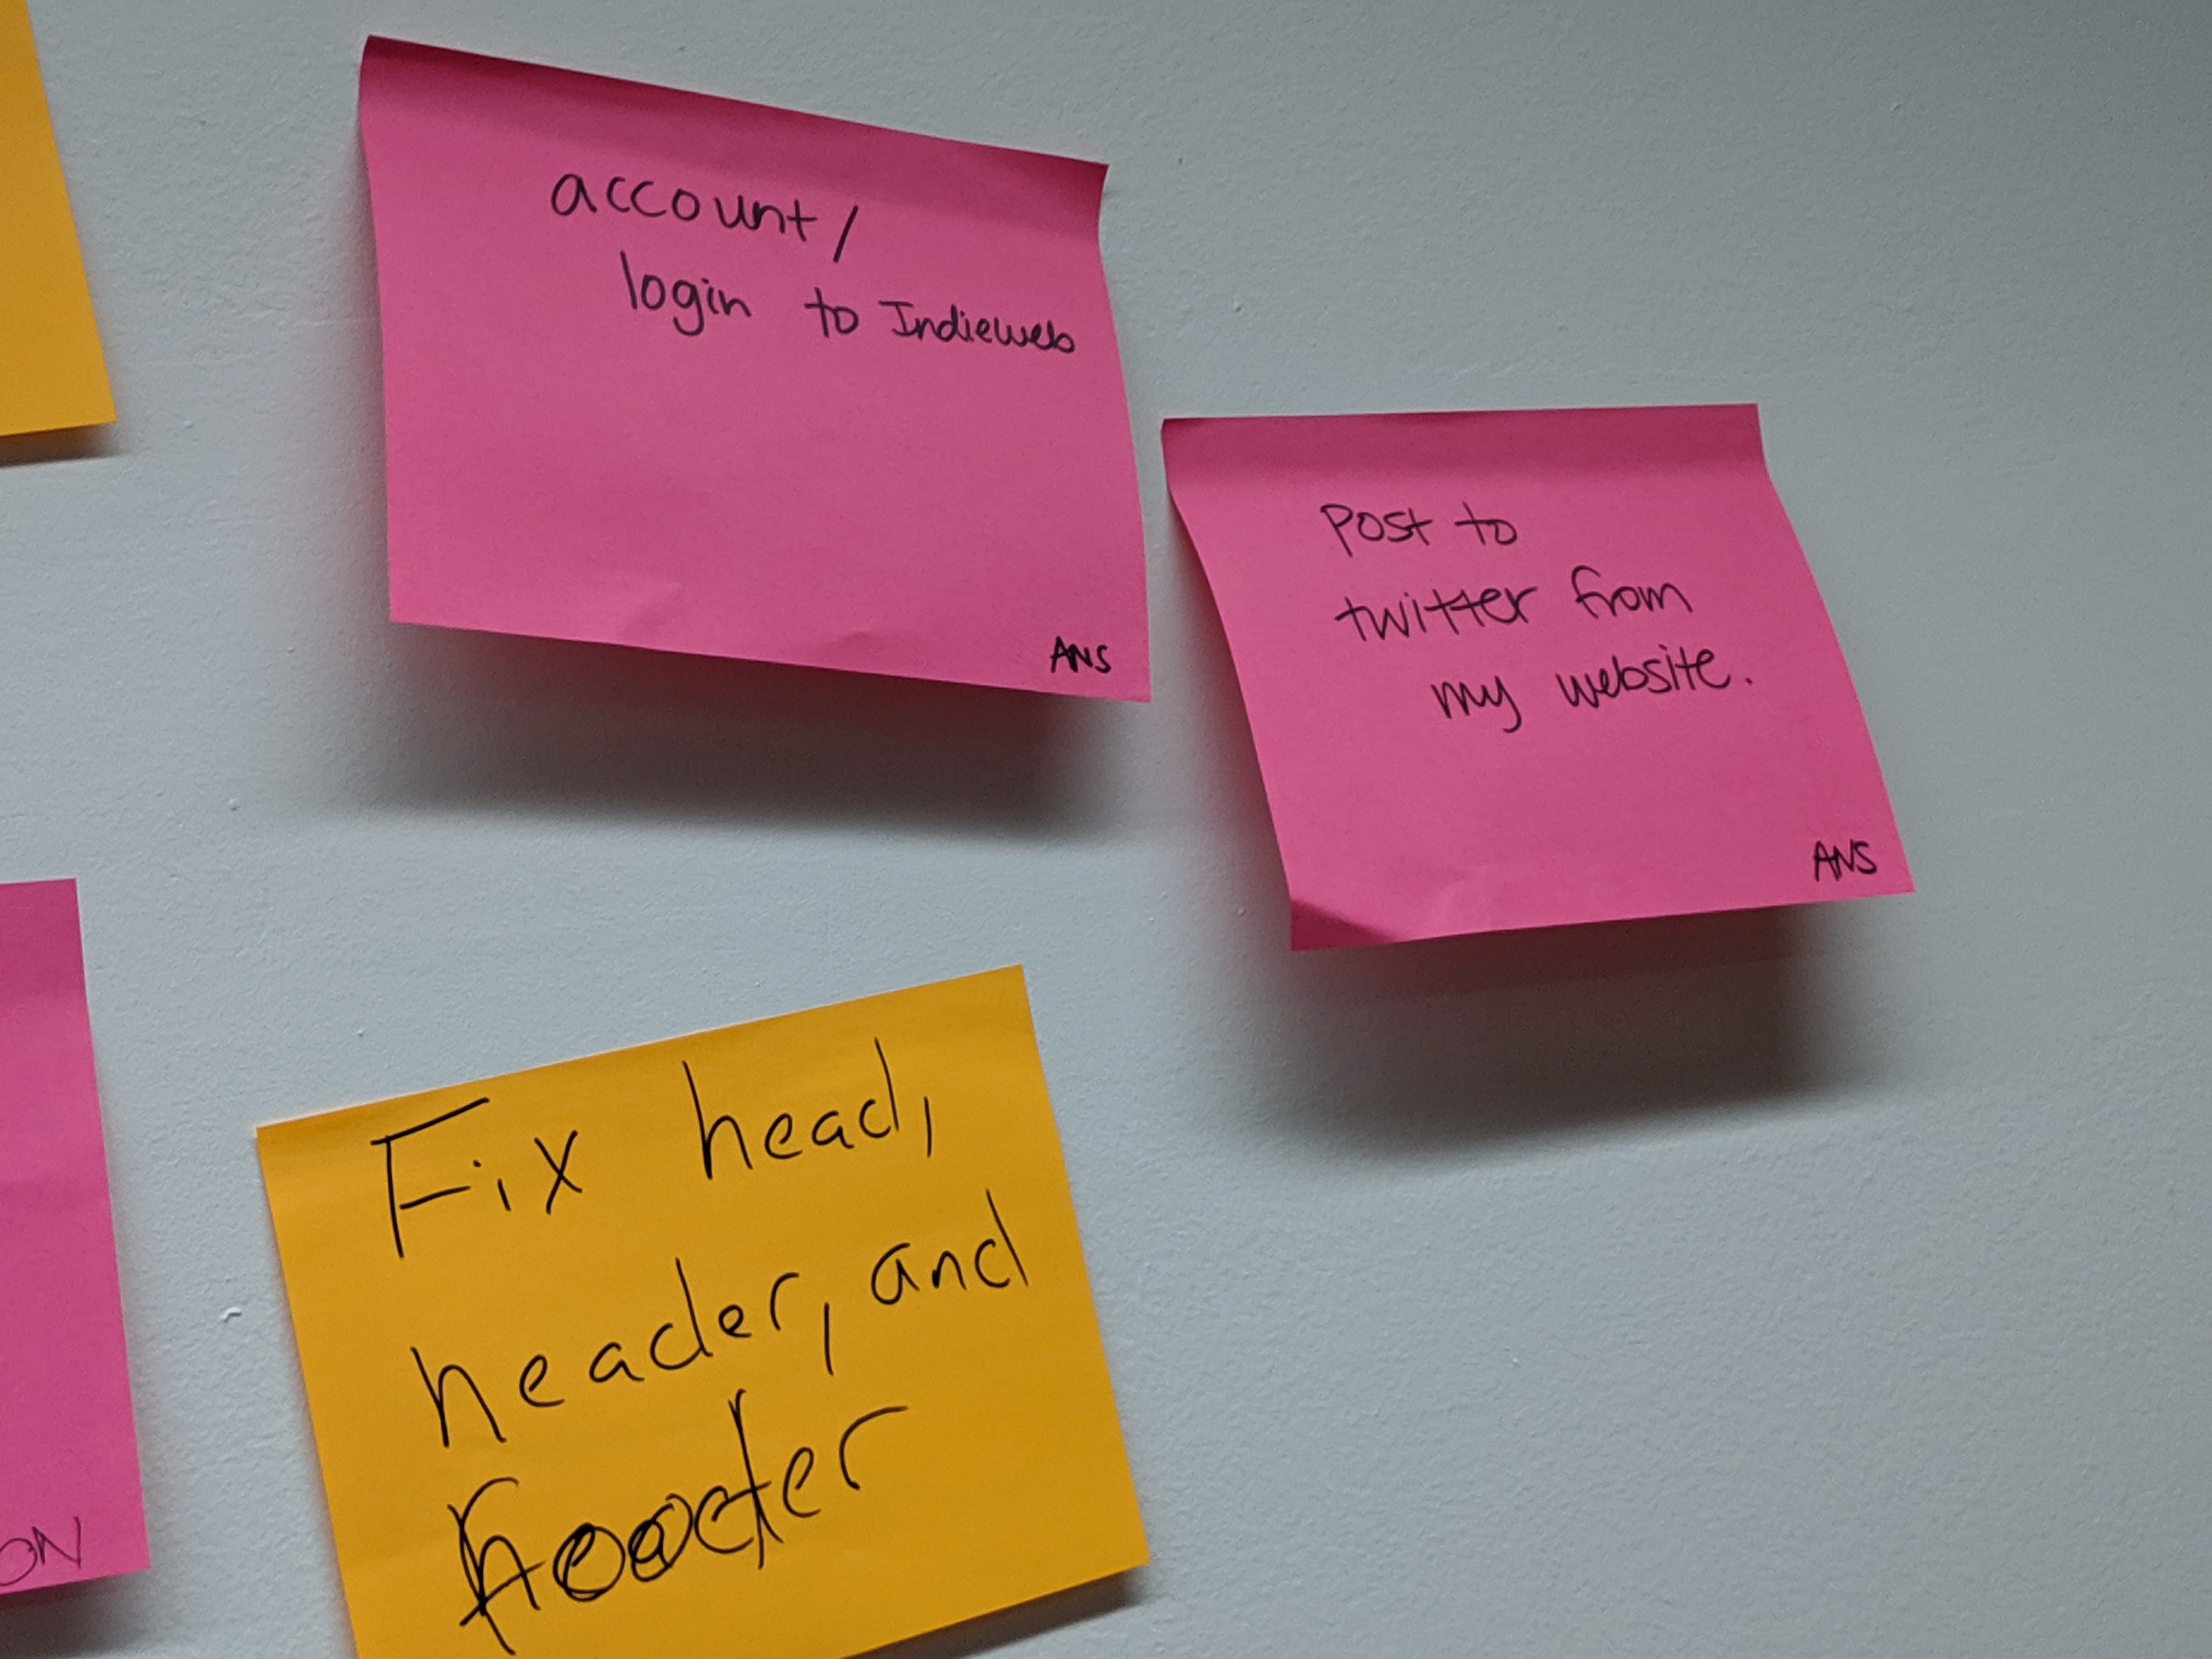 account/
login to Indieweb
ANS
Post to
twitter from
my website.
ANS
Fix head,
header, and
footer
ON